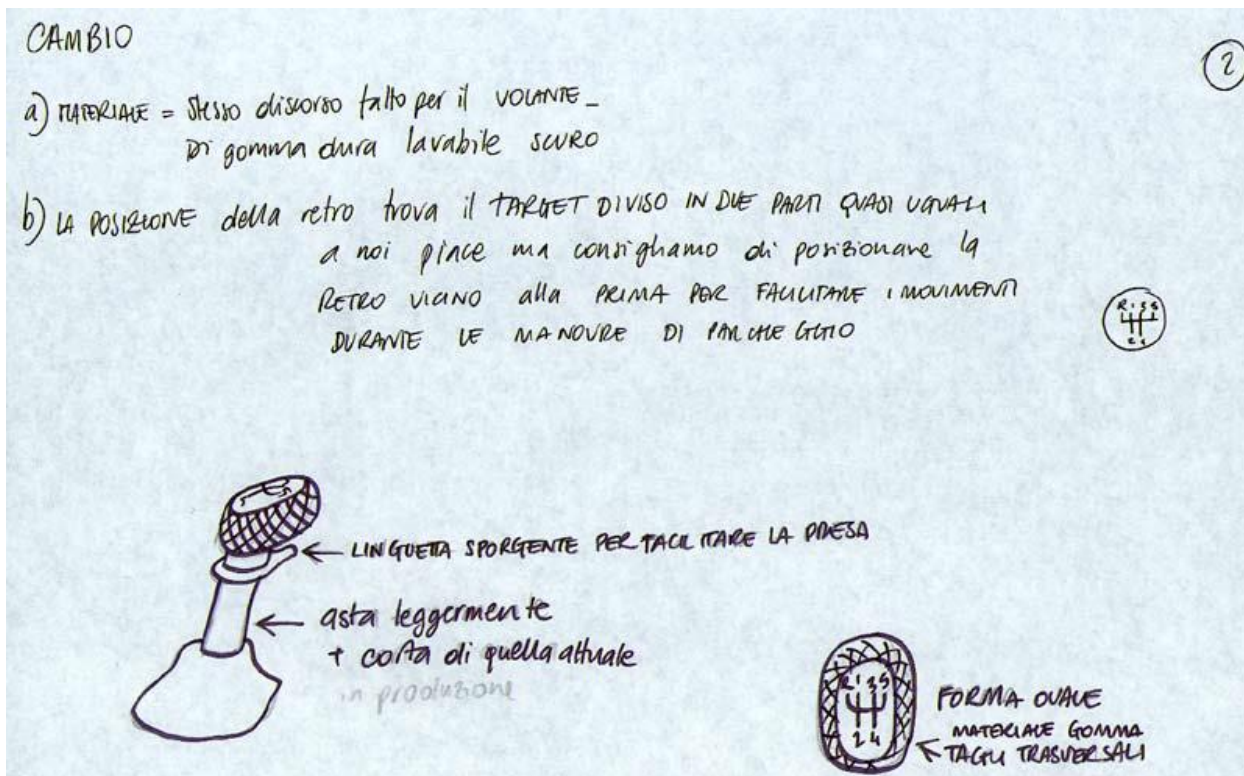 CAMBIO
2
a) MATERIALE = stesso discorso fatto per il VOLANTE _
Di gomma dura lavabile scuro
b) LA POSIZIONE della retro trova il TARGET DIVISO IN DUE PARTI QUASI UGUALI
a noi piace ma consigliamo di posizionare la
RETRO VICINO alla PRIMA PER FACILITARE i MOVIMENTI
DURANTE LE MANOVRE DI PARCHEGGIO
R 1 3 5
2 4
LINGUETTA SPORGENTE PER FACILITARE LA PRESA
asta leggermente
+ corta di quella attuale
in produzione
R 1 3 5
2 4
FORMA OVALE
MATERIALE GOMMA
TAGLI TRASVERSALI